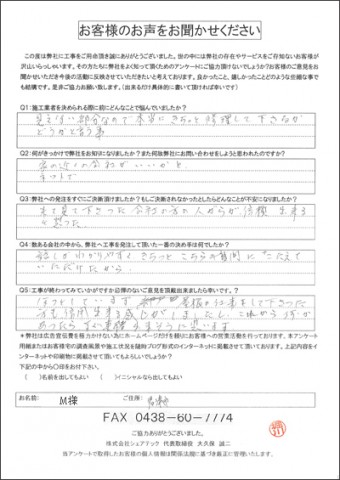 お客様のお声をお聞かせください
この度は弊社に工事をご用命頂き誠にありがとうございました。世の中には弊社の存在やサービスをご存知ないお客様が
沢山いらっしゃいます。その方たちに弊社をよく知って頂くためのアンケートにご協力頂けないでしょうか?お客様のご意見をお
聞かせいただき今後の活動に反映させていただきたいと考えております。良かったこと、嬉しかったことどのような些細な事で
も結構です。是非ご協力お願い致します。(出来るだけ具体的に書いて頂ければ幸いです)
Q1:施工業者を決められる際に前にどんなことで悩んでいましたか?
見えない部分なので本当にきちっと修理して下さるか
どうかと言う事
Q2:何がきっかけで弊社をお知りになりましたか?また何故弊社にお問い合わせをしようと思われたのですか?
家の近くの会社がいいかと
ネットで
Q3:弊社への発注をすぐにご決断頂けましたか?もしご決断されなかったとしたらどんなことが不安になりましたか?
来て見て下さった会社の方の人がらが信頼出来る
と思った
Q4:数ある会社の中から、弊社へ工事を発注して頂いた一番の決め手は何でしたか?
話しが分かりやすくきちっとこちらの質問にこたえて
いただけたから
Q5:工事が終わってみていかがでしたか?忌憚のないご意見を頂戴出来ましたら幸いです。
ほっとしています 屋根の仕事をして下さった
方も信用出来る感じがしましたし、これから何か
あったらすぐ連絡
★弊社は広告宣伝費を極力かけない為にホームページだけを頼りにお客様への営業活動を行っております。本アンケート
用紙またはお客様宅の調査風景や施工状況を随時ブログ形式のインターネットに掲載させて頂いております。上記内容をイ
ンターネットや印刷物に掲載させて頂いてもよろしいでしょうか?
下記の中から〇印をお付下さい。
( )名前を出してもよい ( )イニシャルなら出してもよい
お名前: M様 ご住所:
FAX 0438-60-7774
ご協力ありがとうございました。
株式会社シェアテック 代表取締役 大久保 誠二
当アンケートで取得したお客様の個人情報は関係法規に基づき厳正に管理致します。